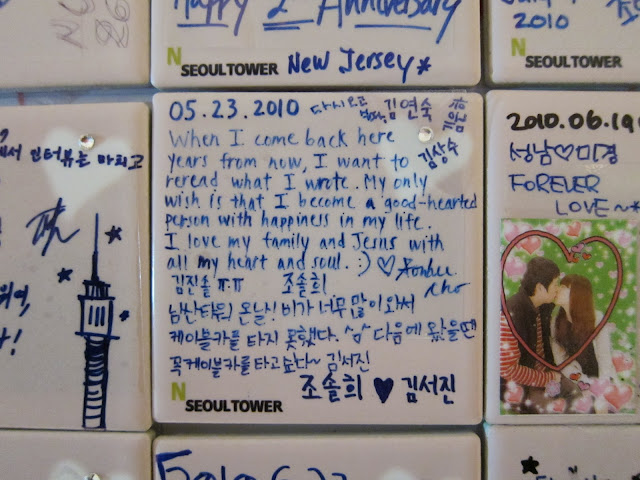 Happy 2nd Anniversary
N SEOULTOWER New Jersey*
2010
N SEOULTOWER
05.23.2010 다시오고 김연숙
김상수
When I come back here
years from now, I want to
reread what I wrote. My only
wish is that I become a good-hearted
person with happiness in my life.
I love my family and Jesus with
all my heart and soul. :) ♡
cho
김진솔 ㅠㅠ 조솔희
남산타워 온날! 비가 너무 많이와서
케이블카를 타지 못했다. ^^ 다음에 왔을땐
꼭케이블카를타고싶다~ 김서진
조솔희 ♥ 김서진
N SEOULTOWER
인터뷰를 마치고
2010.06.19
성남♡미경
FOREVER
LOVE~*